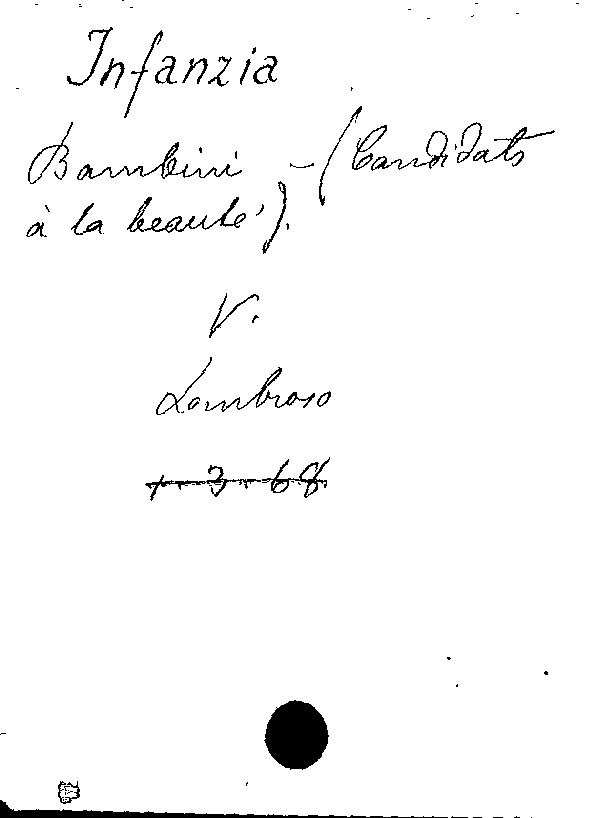 Infanzia
Bambini - (Candidats
à la beauté).
V.
Lombroso
1. 3. 68.